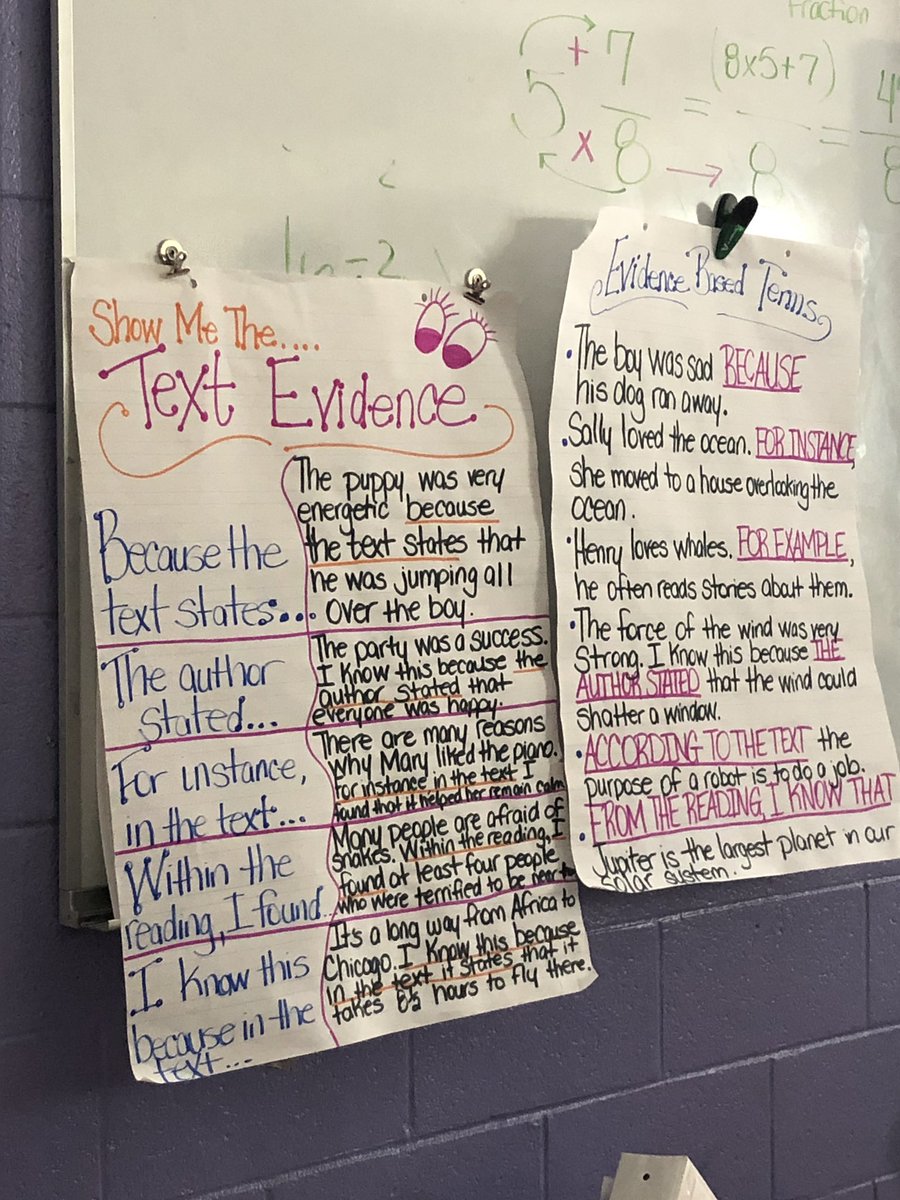 Fraction
5 + 7 (8x5+7) 4
x 8 = 8 = 8
Show Me The....
Text Evidence
Because the
text states...
The puppy was very
energetic because
the text states that
he was jumping all
over the boy.
The author
stated...
The party was a success.
I know this because the
author stated that
everyone was happy.
For instance,
in the text...
There are many reasons
why Mary liked the piano.
For instance in the text I
found that it helped her remain calm
Within the
reading, I found...
Many people are afraid of
snakes. Within the reading, I
found at least four people
who were terrified to be near
I know this
because in the
text...
It's a long way from Africa to
Chicago. I know this because
in the text it states that it
takes 8½ hours to fly there.
Evidence Based Terms
• The boy was sad BECAUSE
his dog ran away.
• Sally loved the ocean. FOR INSTANCE,
she moved to a house overlooking the
ocean.
• Henry loves whales. FOR EXAMPLE,
he often reads stories about them.
• The force of the wind was very
strong. I know this because THE
AUTHOR STATED that the wind could
shatter a window.
• ACCORDING TO THE TEXT the
purpose of a robot is to do a job.
• FROM THE READING, I KNOW THAT
Jupiter is the largest planet in our
solar system.